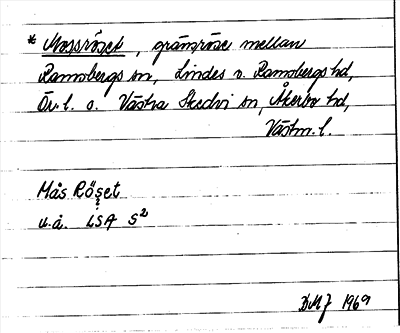 * Mossröset, gränsröse mellan
Ramsbergs sn, Lindes o. Ramsbergs hd,
Ör. l. o. Västra Skedvi sn, Åkerbo hd,
Västm. l.
Mås Röset
u.å. LSA S²
DMJ 1969